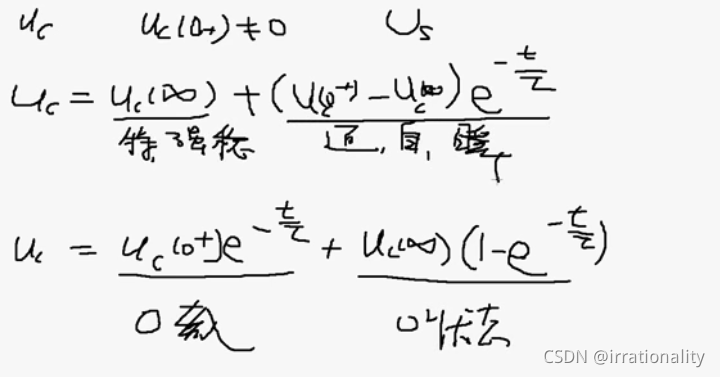 u_c u_c(0+)≠0 U_s
u_c = u_c(∞) + (u_c(0+) - u_c(∞)) e^{-t/τ}
特,强,稳 通,自,暂
u_c = u_c(0+)e^{-t/τ} + u_c(∞)(1-e^{-t/τ})
0输入 0状态
CSDN @irrationality